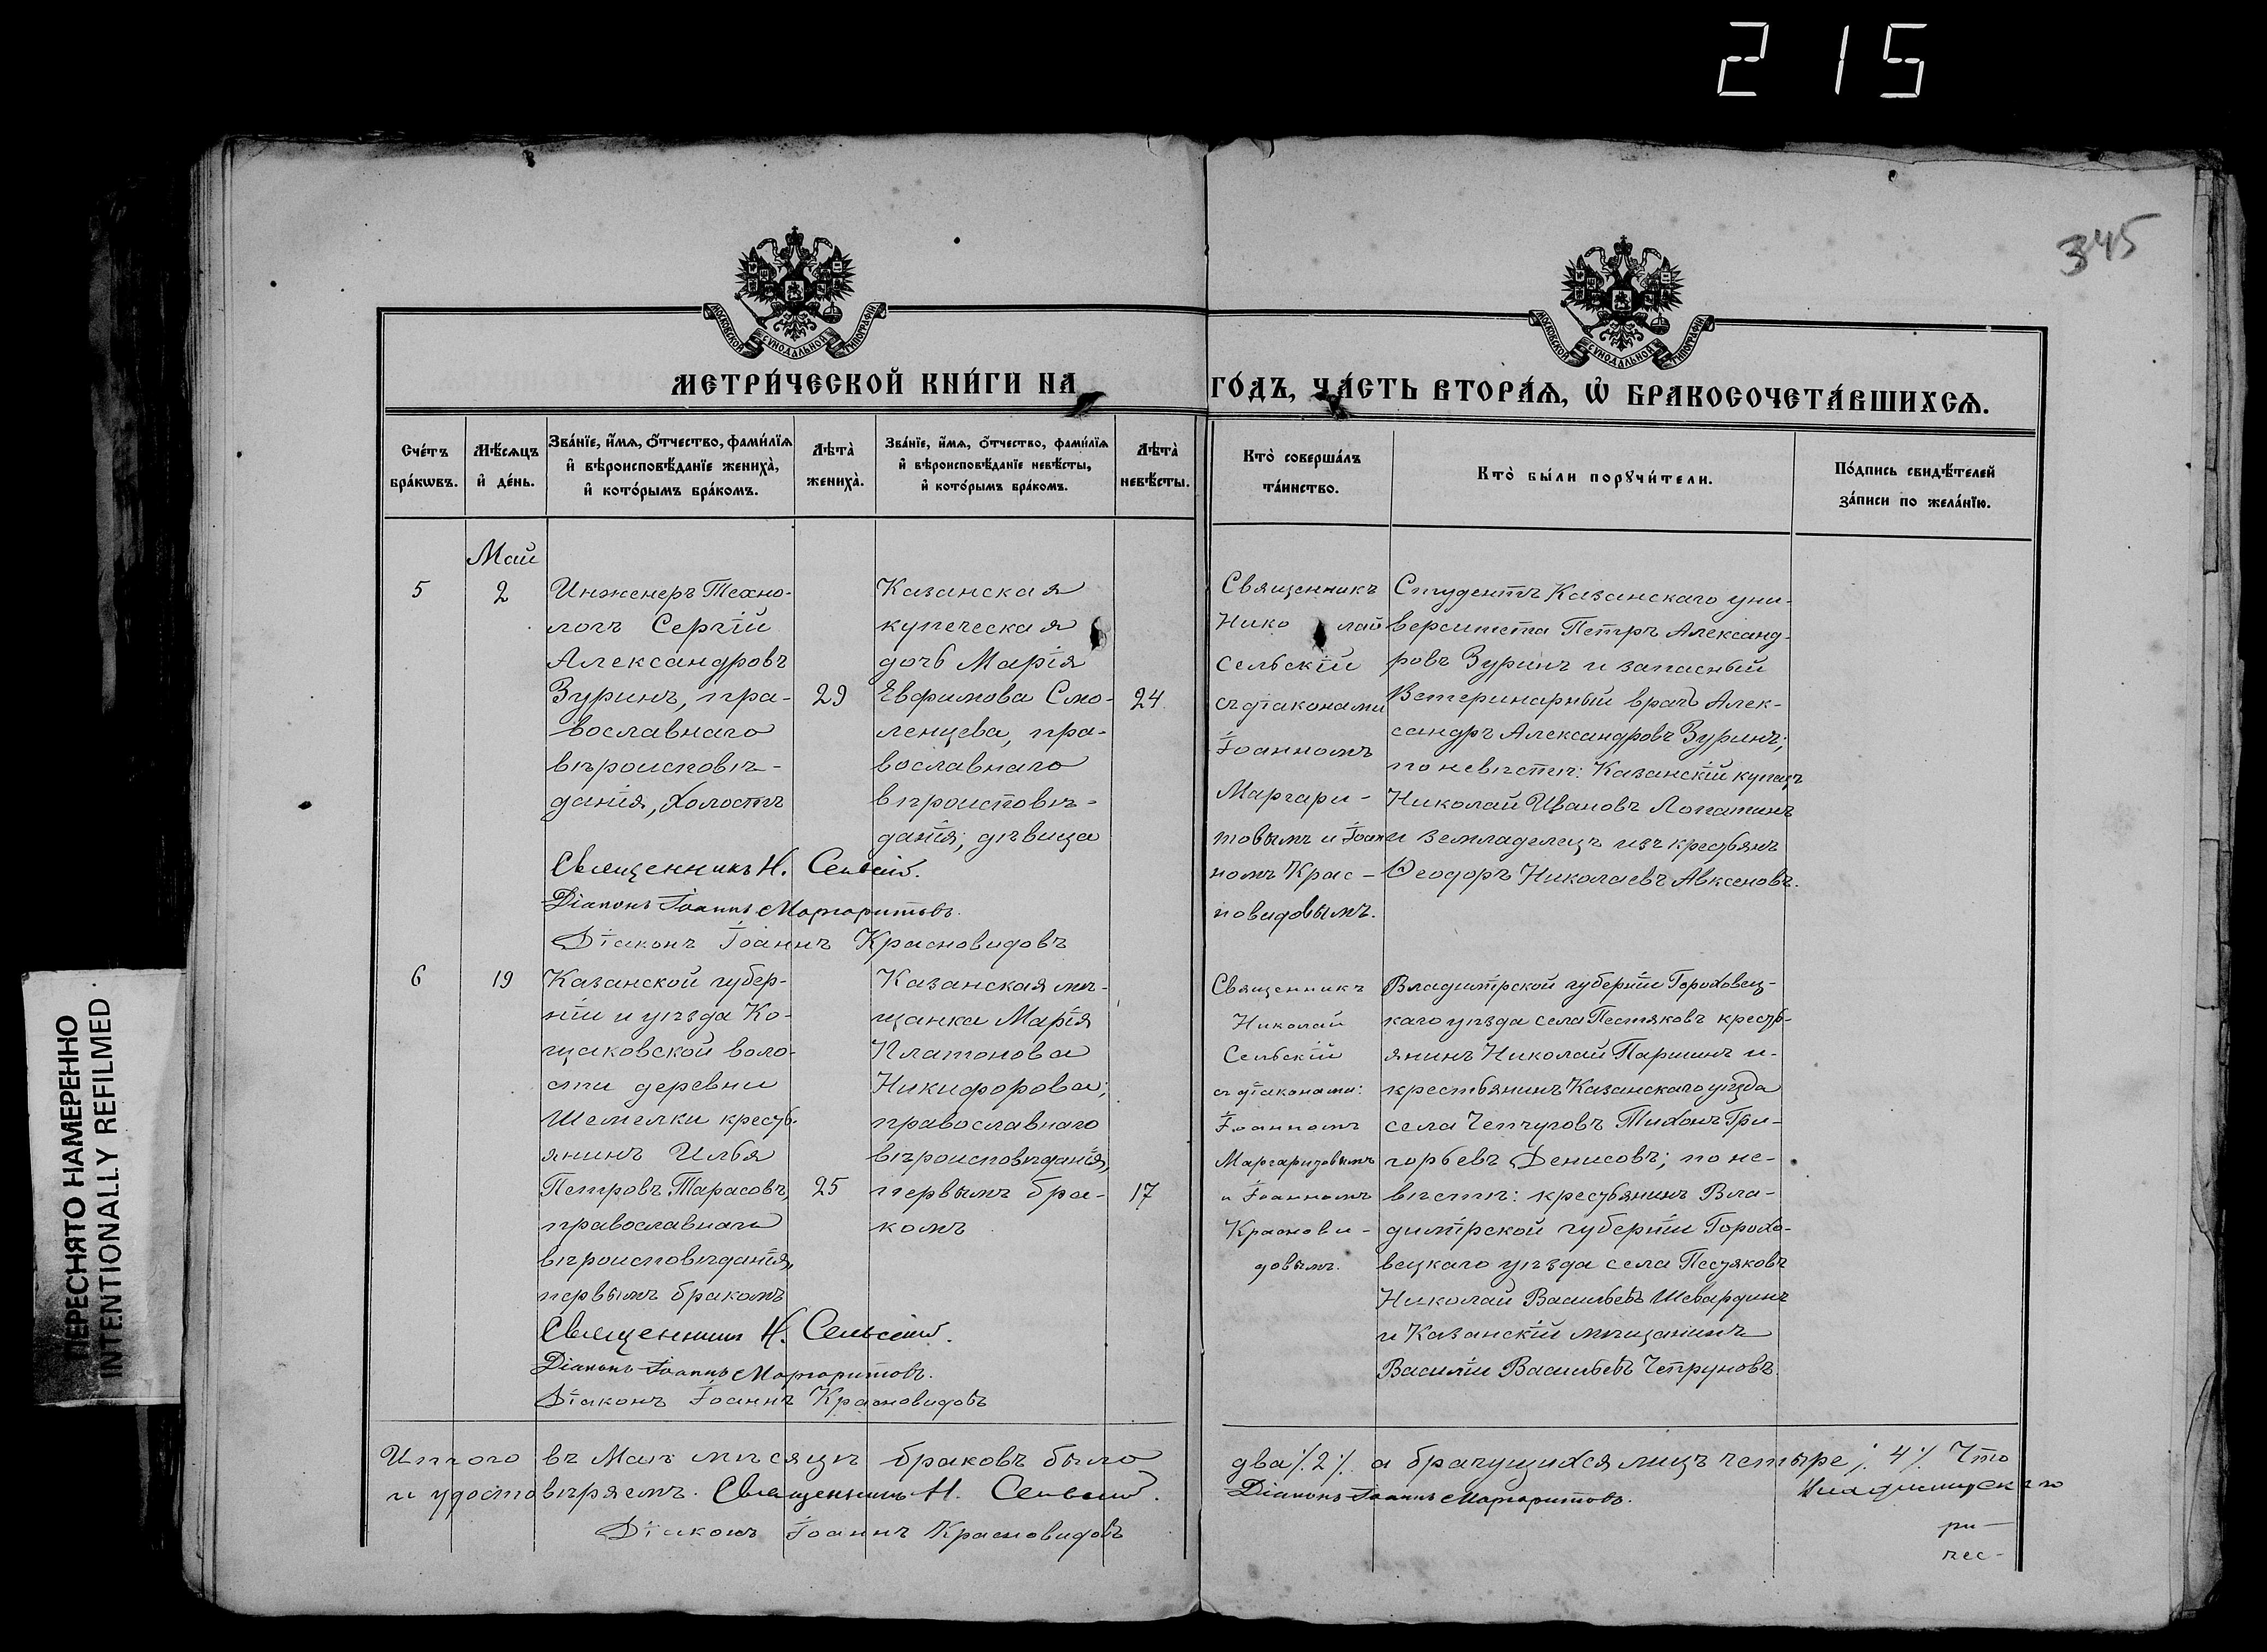 215
345
МОСКОВСКОЙ СУНОДАЛЬНОЙ ТИПОГРАФІИ
МОСКОВСКОЙ СУНОДАЛЬНОЙ ТИПОГРАФІИ
МЕТРИ́ЧЕСКОЙ КНИ́ГИ НА
ГО́ДЪ, ЧА́СТЬ ВТОРА́Ѧ, Ѿ БРАКОСОЧЕТА́ВШИХСѦ.
Сче́тъ бра́кѡвъ.
Мѣ́сѧцъ и҆ де́нь.
Зва́нїе, и҆́мѧ, ѻ҆́тчество, фами́лїѧ
и҆ вѣроисповѣ́данїе жениха̀,
и҆ кото́рымъ бра́комъ.
Лѣта̀ жениха̀.
Зва́нїе, и҆́мѧ, ѻ҆́тчество, фами́лїѧ
и҆ вѣроисповѣ́данїе невѣ́сты,
и҆ кото́рымъ бра́комъ.
Лѣта̀ невѣ́сты.
Кто̀ соверша́лъ
та́инство.
Кто̀ бы́ли порꙋчи́тели.
По́дпись свидѣ́телей
за́писи по жела́нїю.
Май
5
2
Инженеръ Техно-
логъ Сергій
Александровъ
Зуринъ, пра-
вославнаго
вѣроисповѣ-
данія, холостъ
29
Казанская
купеческая
дочь Марія
Евфимова Смо-
ленцева, пра-
вославнаго
вѣроисповѣ-
данія; дѣвица
24
Священникъ
Николай
Сельскій
съ діаконами
Іоанномъ
Маргари-
товымъ и Іоан-
номъ Крас-
новидовымъ.
Студентъ Казанскаго уни-
верситета Петръ Александ-
ровъ Зуринъ и запасный
Ветеринарный врачъ Алек-
сандръ Александровъ Зуринъ;
по невѣстѣ: Казанскій купецъ
Николай Ивановъ Лопатинъ
и земладелецъ изъ крестьянъ
Ѳеодоръ Николаевъ Авксеновъ.
Священникъ Н. Сельскій.
Діаконъ Іоаннъ Маргаритовъ.
Діаконъ Іоаннъ Красновидовъ
6
19
Казанской губер-
ніи и уѣзда Ко-
щаковской воло-
сти деревни
Шемелки кресть-
янинъ Илья
Петровъ Тарасовъ,
православнаго
вѣроисповѣданія,
первымъ бракомъ
25
Казанская мѣ-
щанка Марія
Платонова
Никифорова;
православнаго
вѣроисповѣданія,
первымъ бра-
комъ
17
Священникъ
Николай
Сельскій
съ діаконами:
Іоанномъ
Маргаритовымъ
и Іоанномъ
Краснови-
довымъ.
Владимірской губерніи Гороховец-
каго уѣзда села Пестяковъ кресть-
янинъ Николай Паршинъ и
крестьянинъ Казанскаго уѣзда
села Чепчуговъ Тихонъ Гри-
горьевъ Денисовъ; по не-
вѣстѣ: крестьянинъ Вла-
димірской губерніи Горохо-
вецкаго уѣзда села Пестяковъ
Николай Васильевъ Шевардинъ
и Казанскій мѣщанинъ
Василій Васильевъ Чепруновъ.
Священникъ Н. Сельскій.
Діаконъ Іоаннъ Маргаритовъ.
Діаконъ Іоаннъ Красновидовъ
Итого въ Маѣ мѣсяцѣ браковъ было
два ⁒ 2 ⁒ а брачущихся лицъ четыре ⁒ 4 ⁒ Что
и удостовѣряемъ. Священникъ Н. Сельскій.
Діаконъ Іоаннъ Маргаритовъ.
Діаконъ Іоаннъ Красновидовъ
ри-
чес-
ПЕРЕСНЯТО НАМЕРЕННО
INTENTIONALLY REFILMED